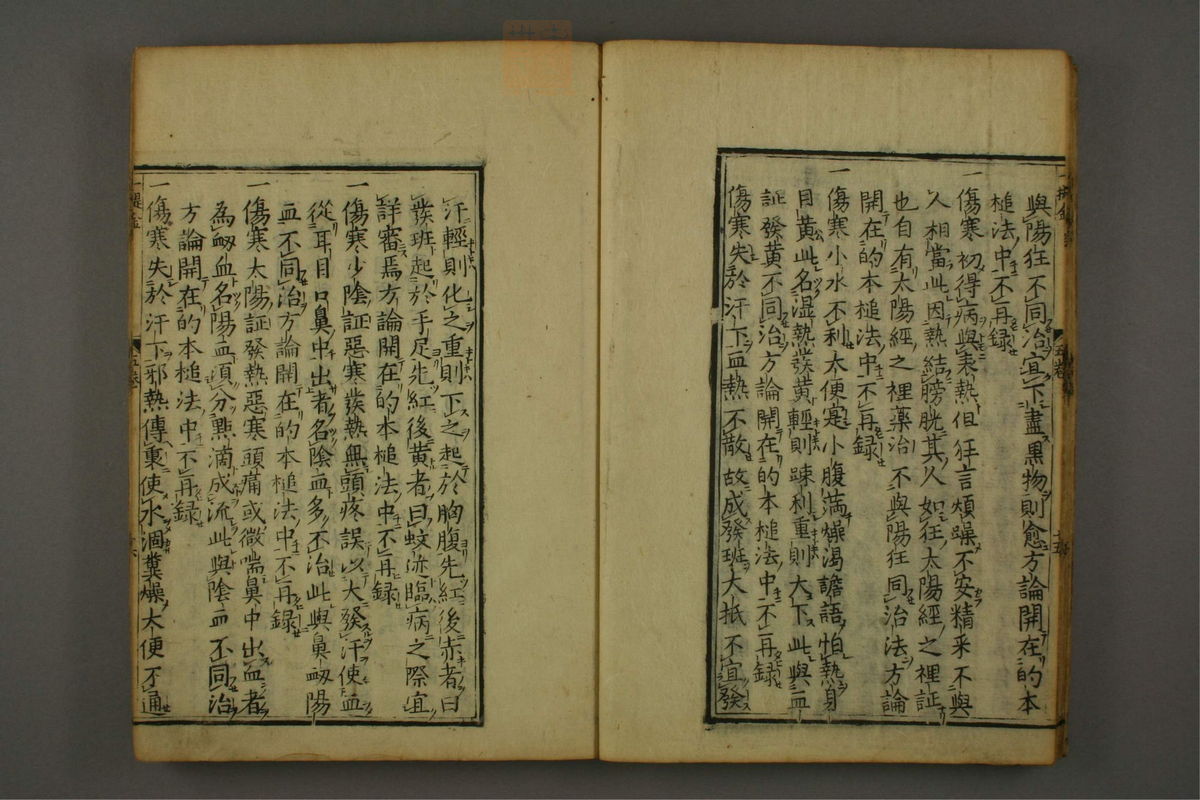 與陽狂不同治宜下盡黒物則愈方論開在的本
槌法中不再録
一傷寒初得病與表熱但狂言煩躁不安精采不與
人相當此因熱結膀胱其人如狂太陽經之裡証
也自有太陽經之裡藥治不與陽狂同治法方論
開在的本槌法中不再録
一傷寒小水不利大便寔小腹満燥渇譫語怕熱身
目黄此名湿熱發黄輕則踈利重則大下此與血
証發黄不同治方論開在的本槌法中不再録
傷寒失於汗下血熱不散故成發班大抵不宜發
汗輕則化之重則下之起於胸腹先紅後赤者曰
發班起於手足先紅後黄者曰蚊迹臨病之際宜
詳審焉方論開在的本槌法中不再録
一傷寒少陰証惡寒發熱無頭疼誤以大發汗使血
從耳目口鼻中出者名陰血多不治此與鼻衂陽
血不同治方論開在的本槌法中不再録
一傷寒太陽証發熱惡寒頭痛或微喘鼻中出血者
為衂血名陽血須分點滴成流此與陰血不同治
方論開在的本槌法中不再録
一傷寒失於汗下邪熱傳裏使水涸糞燥大便不通